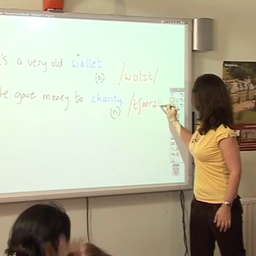 's a very old wallet /wɒlɪt/
(n)
e gave money to charity /tʃær
(n)